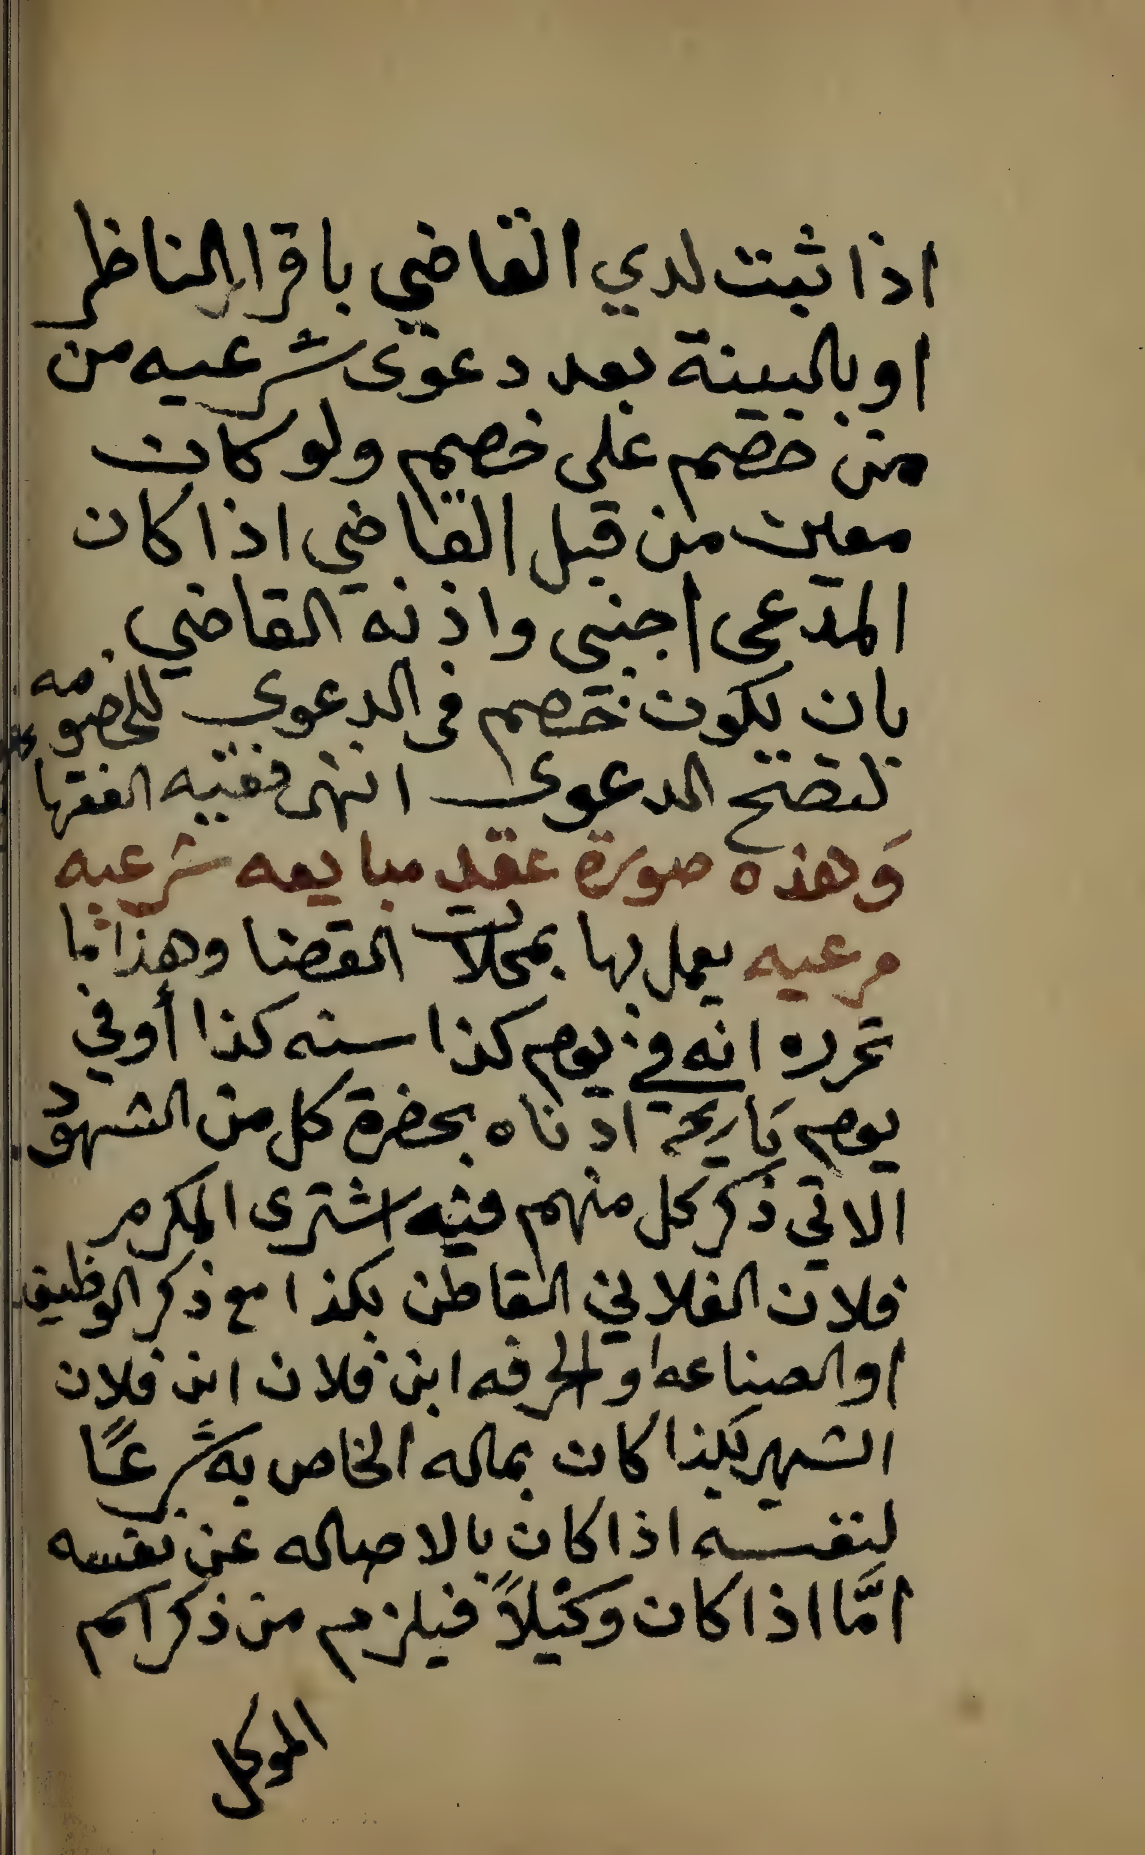 اذا ثبت لدي القاضي باقرار الناظر
او بالبينة بعد دعوى شرعيه من
من خصم على خصم ولو كان
معين من قبل القاضي اذا كان
المدعى اجنبى واذنه القاضي
بان يكون خصم فى الدعوى للخصومه
لتصتح الدعوى انتهى فقيه الفقها
وهذه صورة عقد مبايعه شرعيه
مرعيه يعمل بها بمحلات القضا وهذا ما
تحرره انه في يوم كذا سنه كذا أو في
يوم تاريخه ادناه بحضرة كل من الشهود
الاتي ذكر كل منهم فيه اشترى المكرم
فلان الفلاني القاطن بكذا مع ذكر الوظيفه
او الصناعه او الحرفه ابن فلان ابن فلان
الشهير بكذا كان بماله الخاص به شرعًا
لنفسه اذا كان بالاصاله عن نفسه
امَّا اذا كان وكيلاً فيلزم من ذكر اسم
الموكل